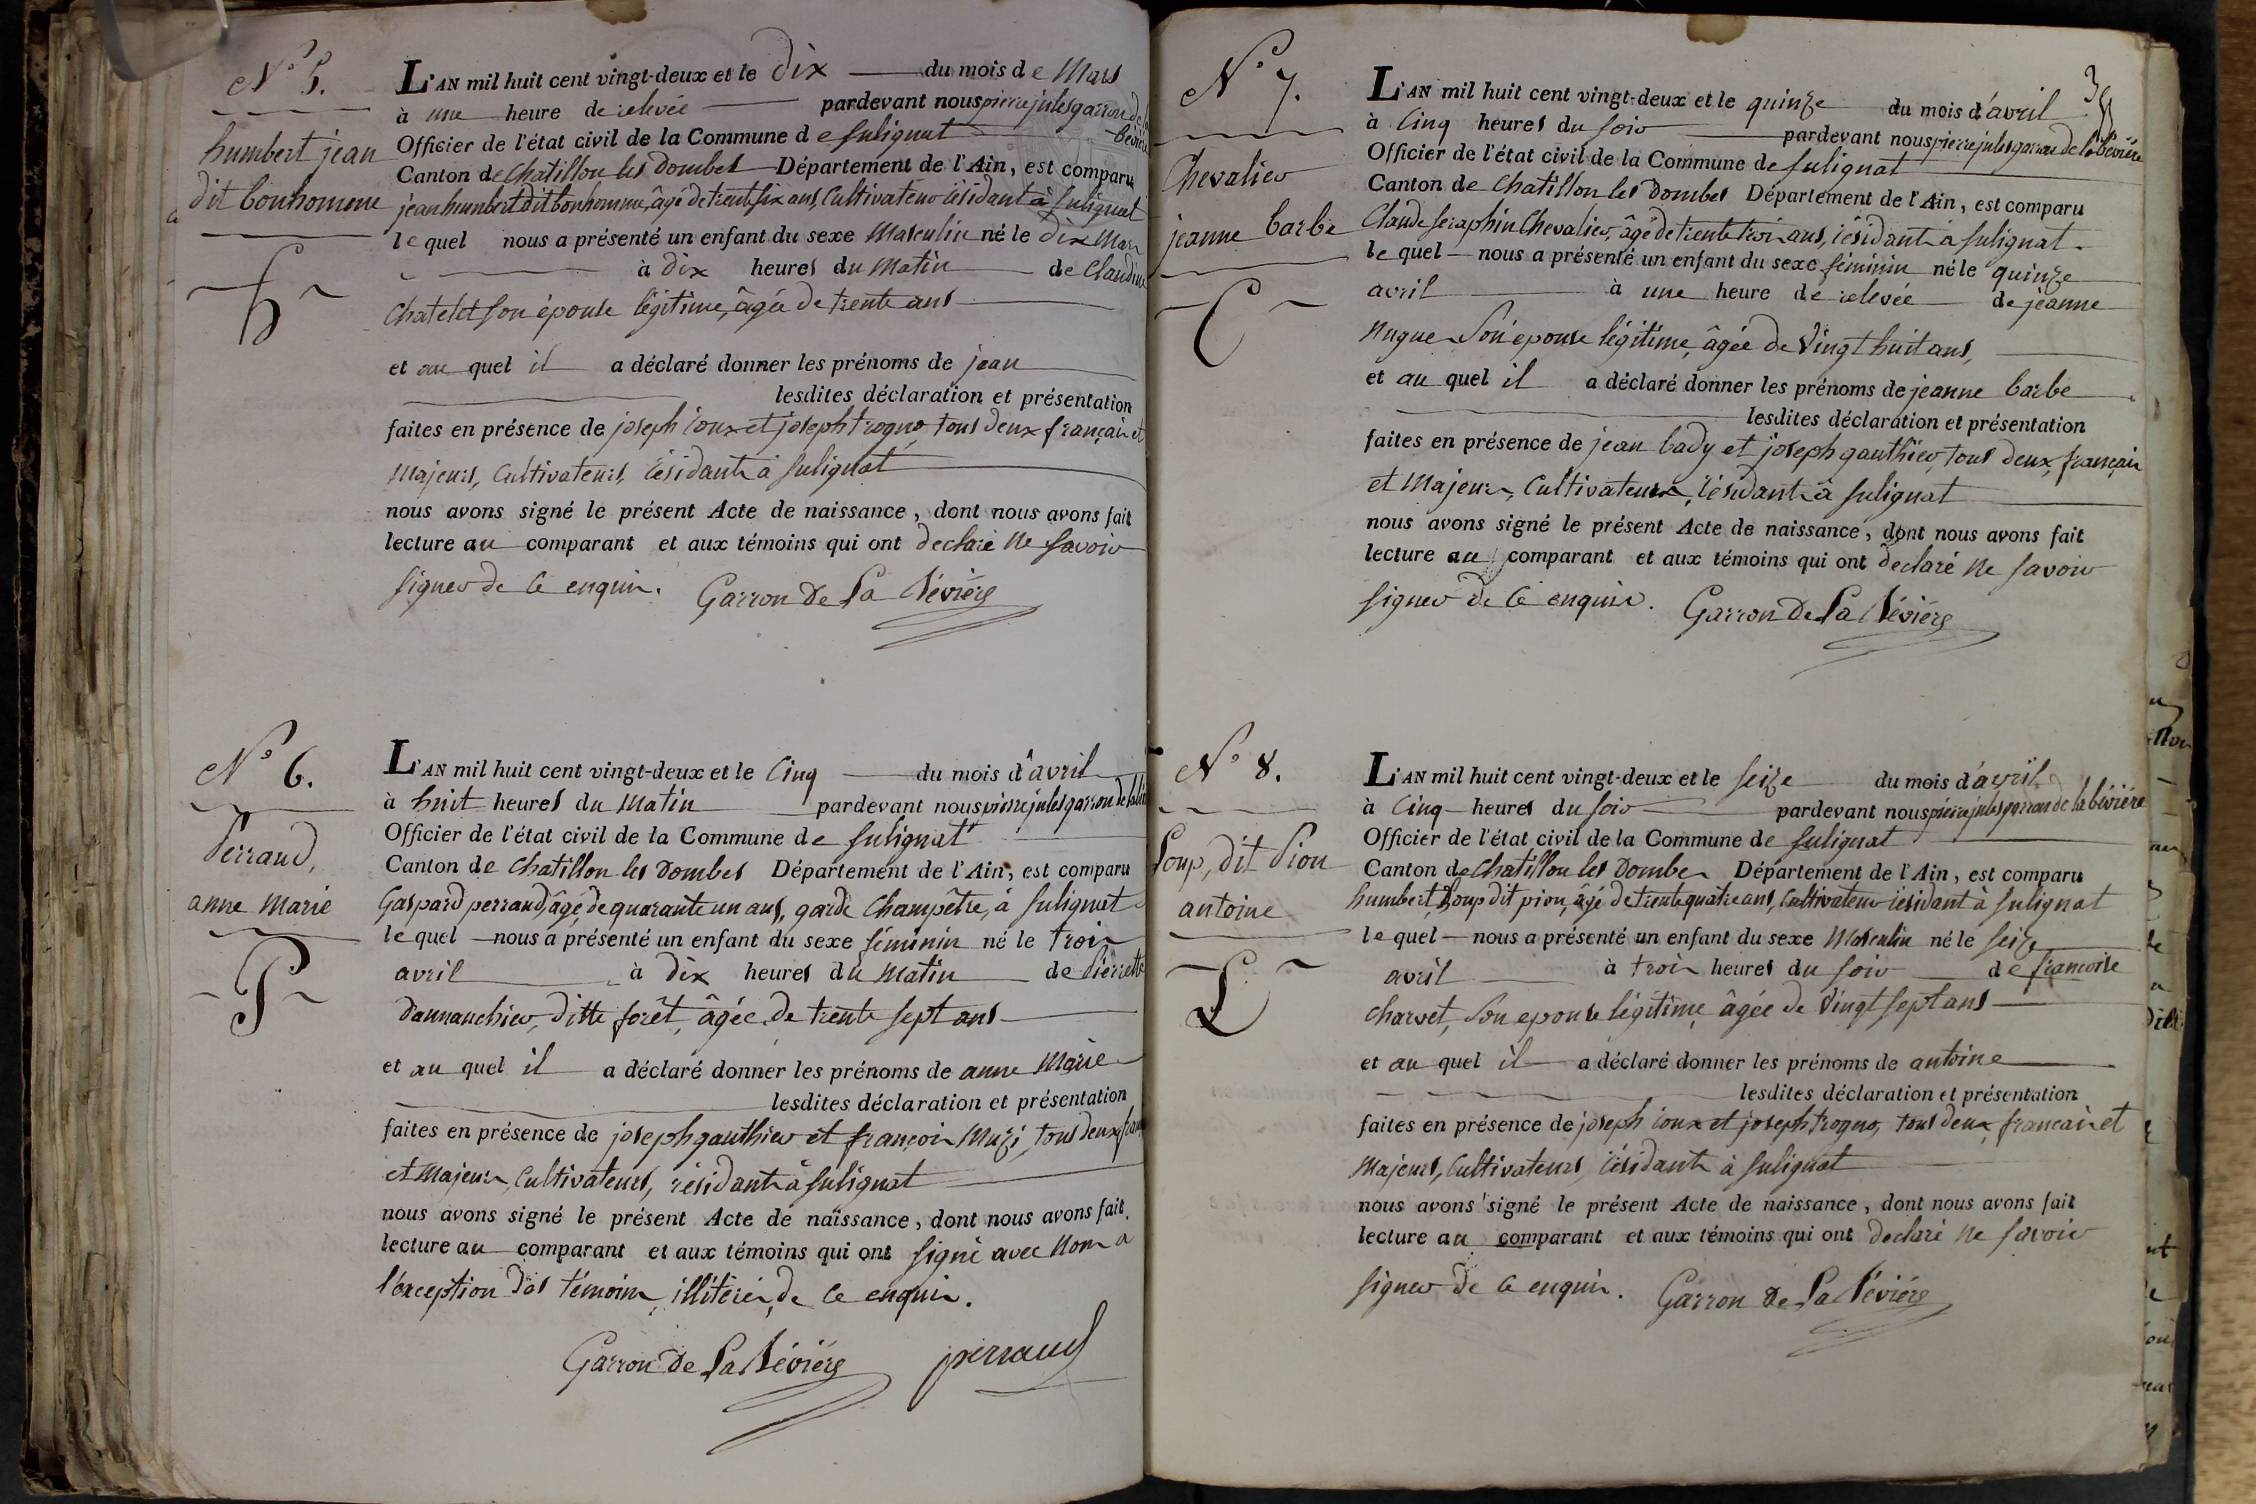 N.° 5.
humbert jean
dit bonhomme
h
L'AN mil huit cent vingt-deux et le dix du mois de Mars
à une heure de relevée pardevant nous pierre jules garron de la
bévière
Officier de l'état civil de la Commune de sulignat
Canton de Chatillon les Dombes Département de l'Ain, est comparu
jean humbert dit bonhomme, âgé de trente six ans, Cultivateur résidant à sulignat
lequel nous a présenté un enfant du sexe Masculin né le dix Mars
à dix heures du Matin de Claudine
Chatelet son épouse légitime, âgée de trente ans
et au quel il a déclaré donner les prénoms de jean
lesdites déclaration et présentation
faites en présence de joseph joux et joseph trogno, tous deux français et
Majeurs, Cultivateurs, résidants à sulignat
nous avons signé le présent Acte de naissance, dont nous avons fait
lecture au comparant et aux témoins qui ont declaré ne savoir
signer de ce enquis. Garron De La Bévière
N° 6.
Perraud,
anne Marie
P
L'AN mil huit cent vingt-deux et le Cinq du mois d'avril
à huit heures du Matin pardevant nous pierre jules garron de la
Officier de l'état civil de la Commune de sulignat
Canton de Chatillon les Dombes Département de l'Ain, est comparu
Gaspard perraud, âgé de quarante un ans, garde Champêtre, à sulignat
lequel nous a présenté un enfant du sexe féminin né le trois
avril à dix heures du Matin de Pierrette
Dannanchier, ditte forêt, âgée de trente sept ans
et au quel il a déclaré donner les prénoms de anne Marie
lesdites déclaration et présentation
faites en présence de joseph gauthier et françois Muzi, tous deux
et Majeurs, Cultivateurs, résidants à sulignat
nous avons signé le présent Acte de naissance, dont nous avons fait
lecture au comparant et aux témoins qui ont signé avec Nous a
l'exception des témoins illitérés, de ce enquis.
Garron De La Bévière perraud
35
N° 7.
Chevalier
jeanne barbe
C
L'AN mil huit cent vingt-deux et le quinze du mois d'avril
à Cinq heures du soir pardevant nous pierre jules garron de la bévière
Officier de l'état civil de la Commune de sulignat
Canton de Chatillon les Dombes Département de l'Ain, est comparu
Claude seraphin Chevalier, âgé de trente trois ans, résidant à sulignat
lequel nous a présenté un enfant du sexe féminin né le quinze
avril à une heure de relevée de jeanne
Nugue son épouse légitime, âgée de Vingt huit ans,
et au quel il a déclaré donner les prénoms de jeanne barbe
lesdites déclaration et présentation
faites en présence de jean bady et joseph gauthier, tous deux français
et Majeurs, Cultivateurs, résidants à sulignat
nous avons signé le présent Acte de naissance, dont nous avons fait
lecture au comparant et aux témoins qui ont declaré ne savoir
signer de ce enquis. Garron De La Bévière
N° 8.
Loup, dit Pion
antoine
L
L'AN mil huit cent vingt-deux et le seize du mois d'avril
à Cinq heures du soir pardevant nous pierre jules garron de la bévière
Officier de l'état civil de la Commune de sulignat
Canton de Chatillon les Dombes Département de l'Ain, est comparu
humbert Loup dit pion, âgé de trente quatre ans, Cultivateur résidant à sulignat
lequel nous a présenté un enfant du sexe Masculin né le seize
avril à trois heures du soir de françoise
charvet, son epouse légitime âgée de Vingt sept ans
et au quel il a déclaré donner les prénoms de antoine
lesdites déclaration et présentation
faites en présence de joseph joux et joseph trogno, tous deux français et
Majeurs, Cultivateurs, résidants à sulignat
nous avons signé le présent Acte de naissance, dont nous avons fait
lecture au comparant et aux témoins qui ont declaré ne savoir
signer de ce enquis. Garron De La Bévière